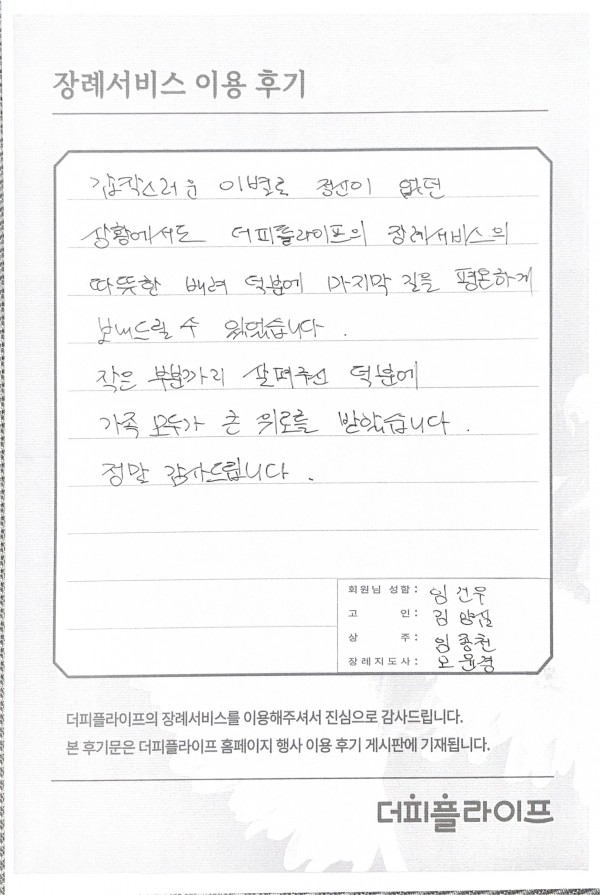 장례서비스 이용 후기
갑작스러운 이별로 정신이 없던
상황에서도 더피플라이프의 장례서비스의
따뜻한 배려 덕분에 마지막 길을 평온하게
보내드릴 수 있었습니다.
작은 부분까지 살펴주신 덕분에
가족 모두가 큰 위로를 받았습니다.
정말 감사드립니다.
회원님 성함: 임건우
고 인: 김
상 주: 임종천
장례지도사: 오윤경
더피플라이프의 장례서비스를 이용해주셔서 진심으로 감사드립니다.
본 후기문은 더피플라이프 홈페이지 행사 이용 후기 게시판에 기재됩니다.
더피플라이프